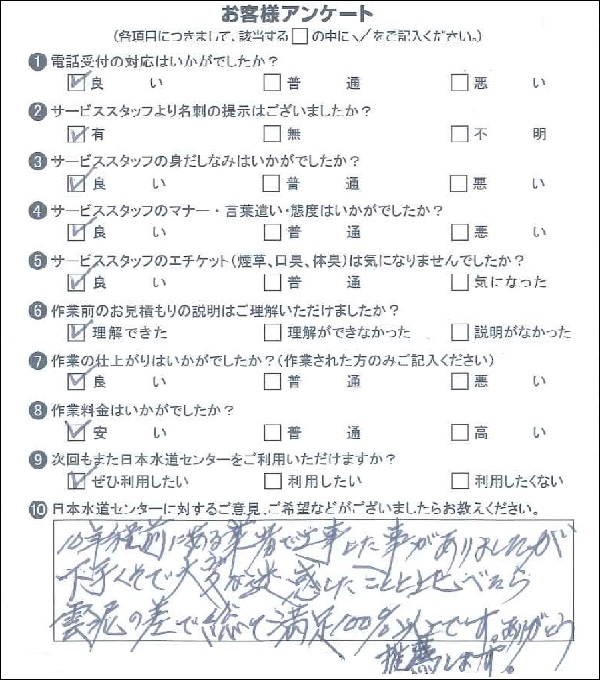 お客様アンケート
(各項目につきまして、該当する□の中に✓をご記入ください。)
❶電話受付の対応はいかがでしたか?
☑良い □普通 □悪い
❷サービススタッフより名刺の提示はございましたか?
☑有 □無 □不明
❸サービススタッフの身だしなみはいかがでしたか?
☑良い □普通 □悪い
❹サービススタッフのマナー・言葉遣い・態度はいかがでしたか?
☑良い □普通 □悪い
❺サービススタッフのエチケット(煙草、口臭、体臭)は気になりませんでしたか?
☑良い □普通 □気になった
❻作業前のお見積もりの説明はご理解いただけましたか?
☑理解できた □理解ができなかった □説明がなかった
❼作業の仕上がりはいかがでしたか?(作業された方のみご記入ください)
☑良い □普通 □悪い
❽作業料金はいかがでしたか?
☑安い □普通 □高い
❾次回もまた日本水道センターをご利用いただけますか?
☑ぜひ利用したい □利用したい □利用したくない
❿日本水道センターに対するご意見、ご希望などがございましたらお教えください。
10年程前にある業者で工事した事がありましたが
下手くそで大変な迷惑したことと比べたら
雲泥の差で総て満足100%以上です。ありがとう
推薦します。